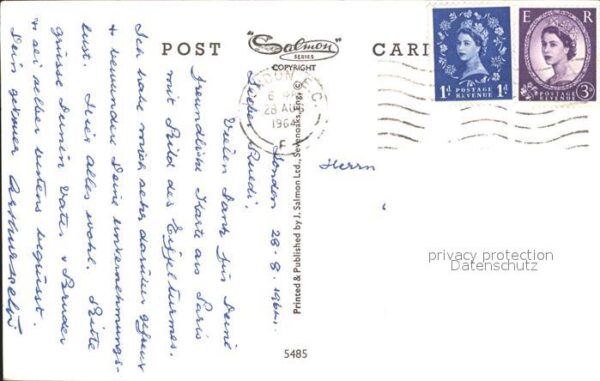 POST
"Salmon"
SERIES
COPYRIGHT
CARD
E R
1d POSTAGE REVENUE 1d
POSTAGE REVENUE 3d
LONDON E.C.
28 AUG
1964
F
London 28-8.1964.
Lieber Ruedi,
Vielen Dank für Deine
freundliche Karte aus Paris
mit Bild des Eiffelturmes.
Ich habe mich sehr darüber gefreut
+ bewundre Deine unternehmungs-
lust. Hier alles wohl. Bitte
grüsse Deinen Vater + Bruder
+ sei selber bestens gegrüsst.
Dein
Herrn
Printed & Published by J. Salmon Ltd., Sevenoaks, Eng. ©
5485
privacy protection
Datenschutz